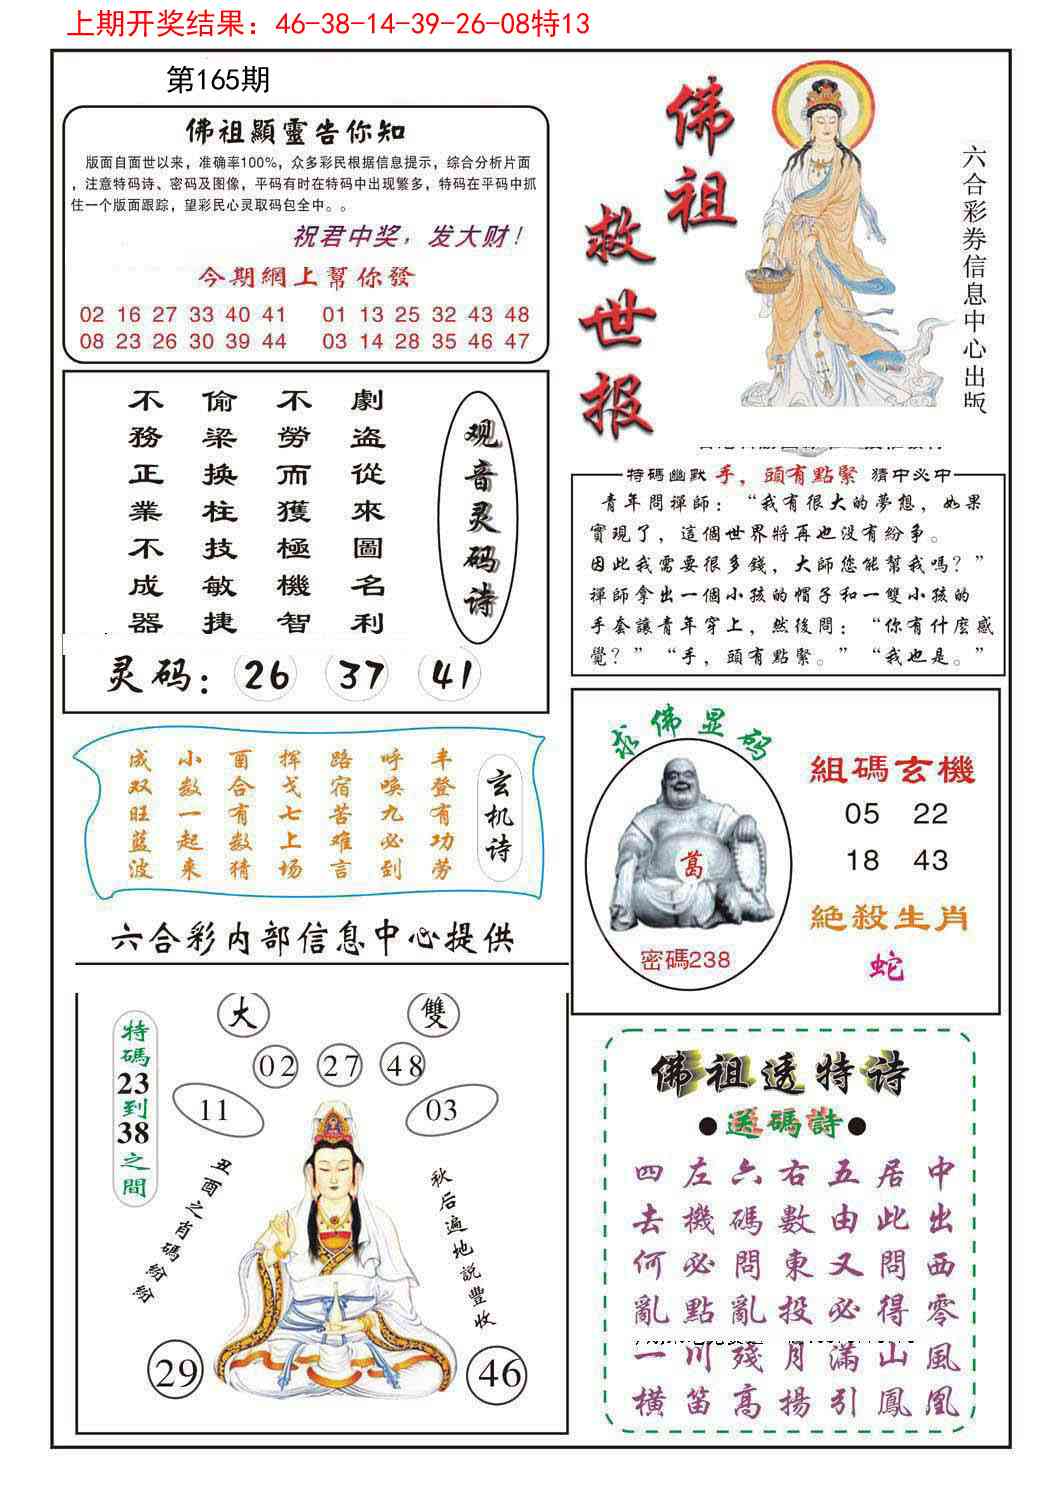 上期开奖结果：46-38-14-39-26-08特13
第165期
佛祖顯靈告你知
版面自面世以来，准确率100%，众多彩民根据信息提示，综合分析片面
，注意特码诗、密码及图像，平码有时在特码中出现繁多，特码在平码中抓
住一个版面跟踪，望彩民心灵取码包全中。。
祝君中奖，发大财！
今期網上幫你發
02 16 27 33 40 41 01 13 25 32 43 48
08 23 26 30 39 44 03 14 28 35 46 47
佛祖
救世报
六合彩券信息中心出版
观音灵码诗
劇盗從來圖名利
不勞而獲極機智
偷梁换柱技敏捷
不務正業不成器
灵码：26 37 41
特碼幽默 手，頭有點緊 猜中必中
青年問禪師：“我有很大的夢想，如果
實現了，這個世界將再也没有紛争。
因此我需要很多錢，大師您能幫我嗎？”
禪師拿出一個小孩的帽子和一雙小孩的
手套讓青年穿上，然後問：“你有什麼感
覺？”“手，頭有點緊。”“我也是。”
玄机诗
丰登有功劳
呼唤九必到
路宿苦难言
挥戈七上场
酉合有数猜
小数一起来
成双旺蓝波
六合彩内部信息中心提供
求佛显码
萬
密碼238
組碼玄機
05 22
18 43
絶殺生肖
蛇
特碼23到38之間
大 雙
02 27 48
11 03
丑酉之肖碼紛紛
秋后遍地説豐收
29 46
佛祖透特诗
●送碼詩●
中出西零風凰
居此問得山鳳
五由又必滿引
右數東投月揚
六碼問亂殘高
左機必點川笛
四去何亂一横